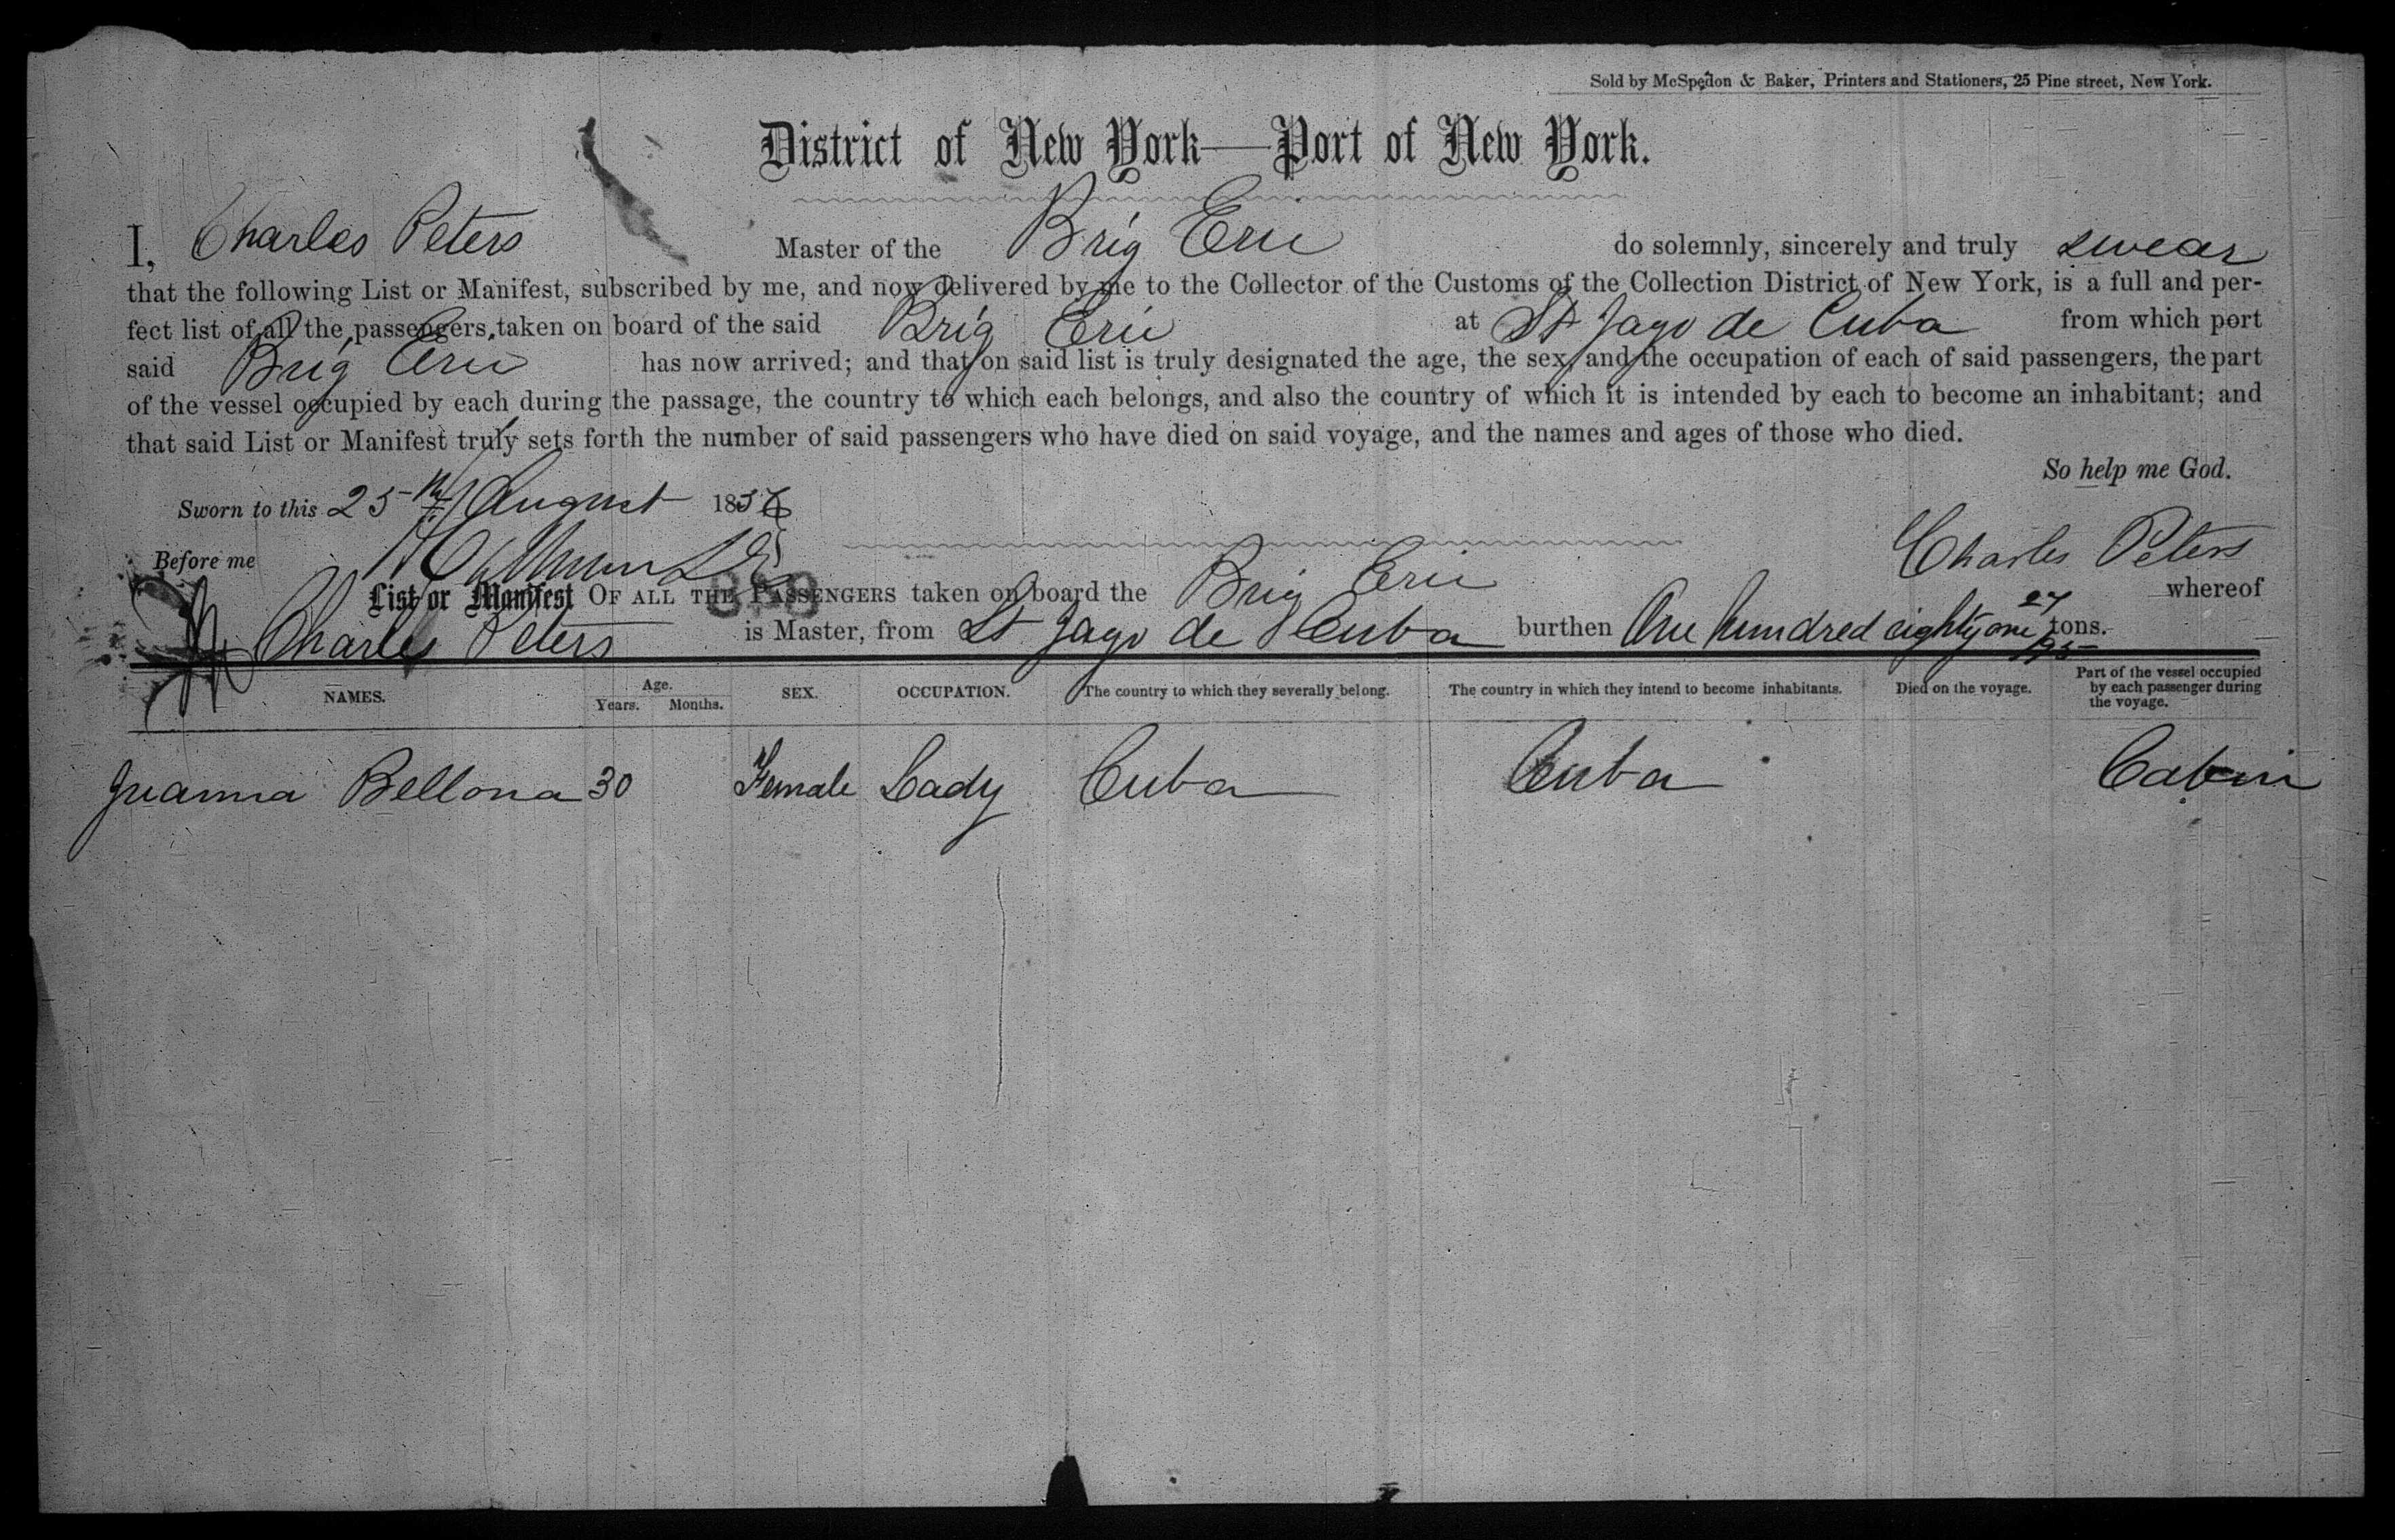 Sold by McSpedon & Baker, Printers and Stationers, 25 Pine street, New York.
District of New York—Port of New York.
I, Charles Peters Master of the Brig Erie do solemnly, sincerely and truly swear
that the following List or Manifest, subscribed by me, and now delivered by me to the Collector of the Customs of the Collection District of New York, is a full and per-
fect list of all the passengers taken on board of the said Brig Erie at St Jago de Cuba from which port
said Brig Erie has now arrived; and that on said list is truly designated the age, the sex, and the occupation of each of said passengers, the part
of the vessel occupied by each during the passage, the country to which each belongs, and also the country of which it is intended by each to become an inhabitant; and
that said List or Manifest truly sets forth the number of said passengers who have died on said voyage, and the names and ages of those who died.
So help me God.
Sworn to this 25th August 185
Before me Charles Peters
List or Manifest OF ALL THE PASSENGERS taken on board the Brig Erie whereof
Charles Peters is Master, from St Jago de Cuba burthen One hundred eighty one 27/95 tons.
NAMES. Age. Years. Months. SEX. OCCUPATION. The country to which they severally belong. The country in which they intend to become inhabitants. Died on the voyage. Part of the vessel occupied by each passenger during the voyage.
Juanna Bellona 30 Female Lady Cuba Cuba Cabin